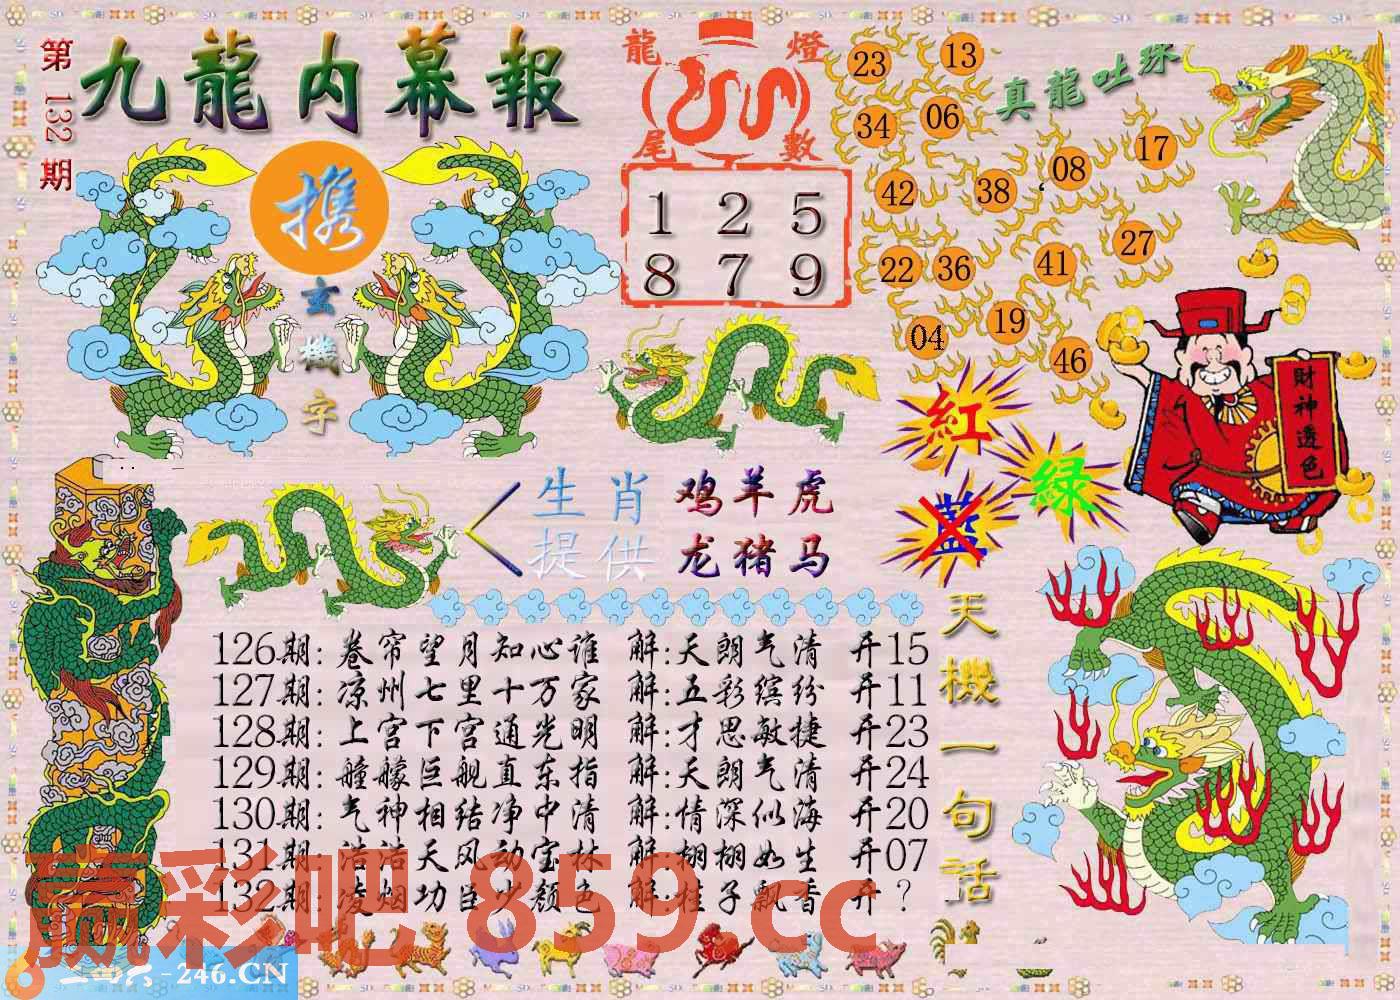 第132期
九龍内幕報
携
玄機字
龍燈尾數
1 2 5
8 7 9
真龍吐珠
23 13
34 06
42 38 08 17
22 36 41 27
04 19 46
紅
綠
藍
財神透色
生肖提供
鸡羊虎
龙猪马
126期:卷帘望月知心谁 解:天朗气清 开15
127期:凉州七里十万家 解:五彩缤纷 开11
128期:上宫下宫通光明 解:才思敏捷 开23
129期:艟艨巨舰直东指 解:天朗气清 开24
130期:气神相结净中清 解:情深似海 开20
131期:浩浩天风动宝林 解:栩栩如生 开07
132期:凌烟功臣少颜色 解:桂子飘香 开?
天機一句話
赢彩吧 859.cc
二四六-246.CN